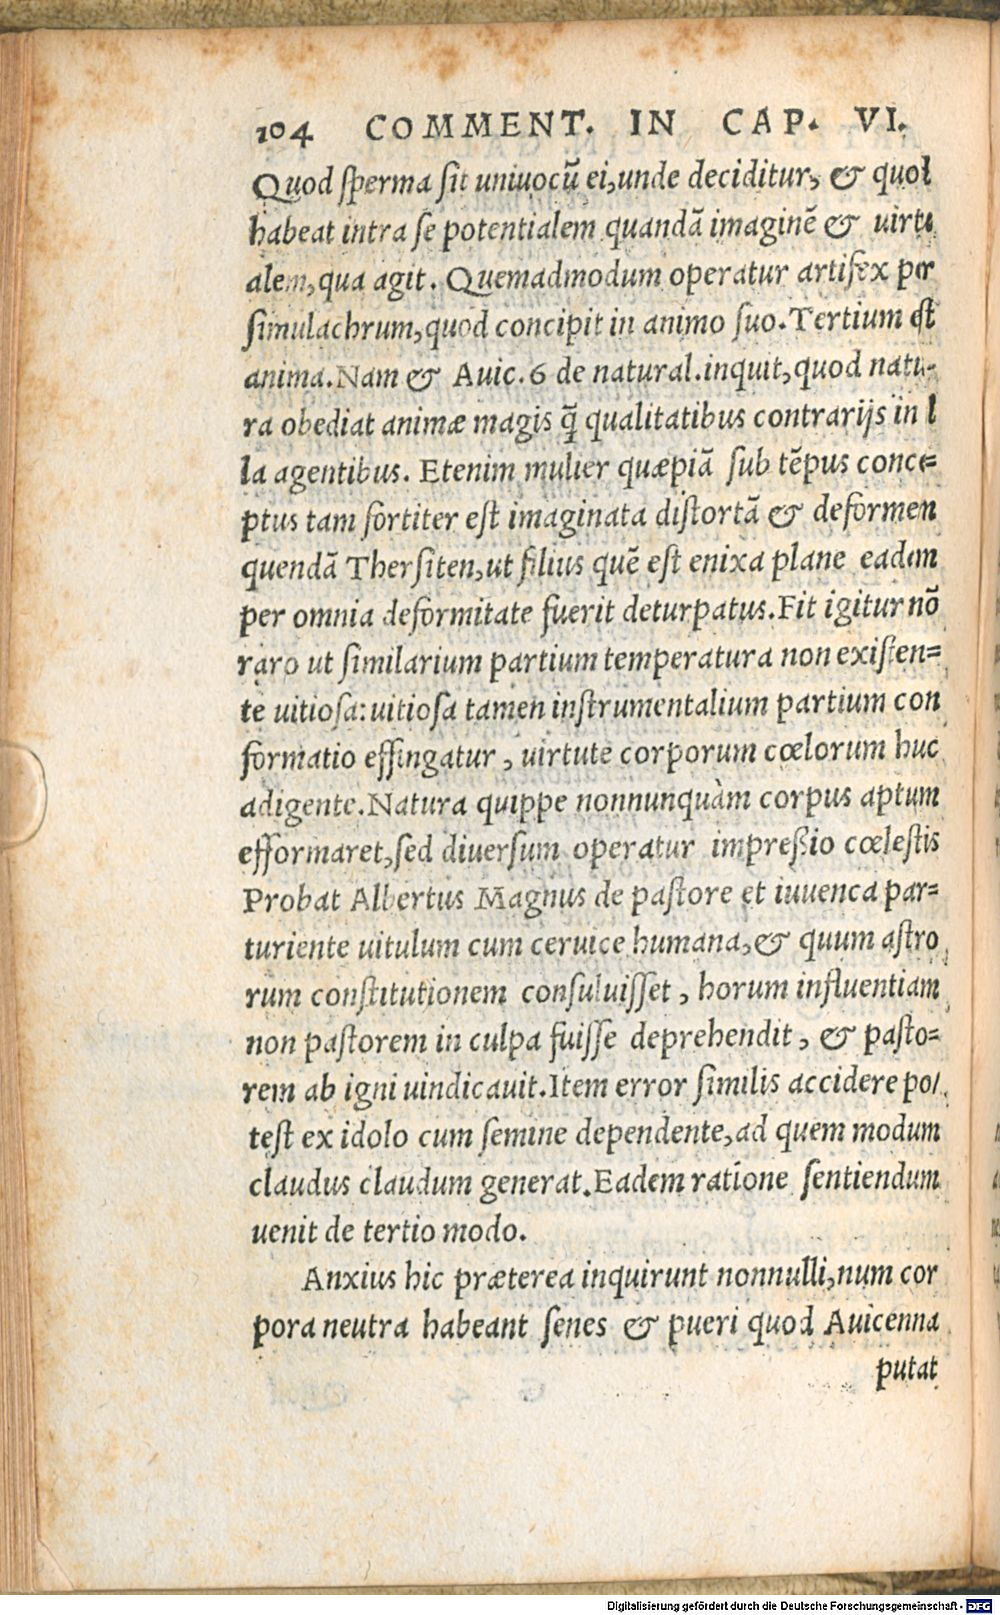 104 COMMENT. IN CAP. VI.
Quod sperma sit univocũ ei, unde deciditur, & quod
habeat intra se potentialem quandã imaginẽ & uirtu
alem, qua agit. Quemadmodum operatur artifex per
simulachrum, quod concipit in animo suo. Tertium est
anima. Nam & Auic. 6 de natural. inquit, quod natu-
ra obediat animæ magis q̃ qualitatibus contrarijs in l
la agentibus. Etenim mulier quæpiã sub tẽpus conce=
ptus tam fortiter est imaginata distortã & deformem
quendã Thersiten, ut filius quẽ est enixa plane eadem
per omnia deformitate fuerit deturpatus. Fit igitur nõ
raro ut similarium partium temperatura non existen=
te uitiosa: uitiosa tamen instrumentalium partium con
formatio effingatur, uirtute corporum cœlorum huc
adigente. Natura quippe nonnunquàm corpus aptum
efformaret, sed diuersum operatur impreßio cœlestis
Probat Albertus Magnus de pastore et iuuenca par=
turiente uitulum cum ceruice humana, & quum astro
rum constitutionem consuluisset, horum influentiam
non pastorem in culpa fuisse deprehendit, & pasto=
rem ab igni uindicauit. Item error similis accidere po/
test ex idolo cum semine dependente, ad quem modum
claudus claudum generat. Eadem ratione sentiendum
uenit de tertio modo.
Anxius hic præterea inquirunt nonnulli, num cor
pora neutra habeant senes & pueri quod Auicenna
putat
Digitalisierung gefördert durch die Deutsche Forschungsgemeinschaft - DFG